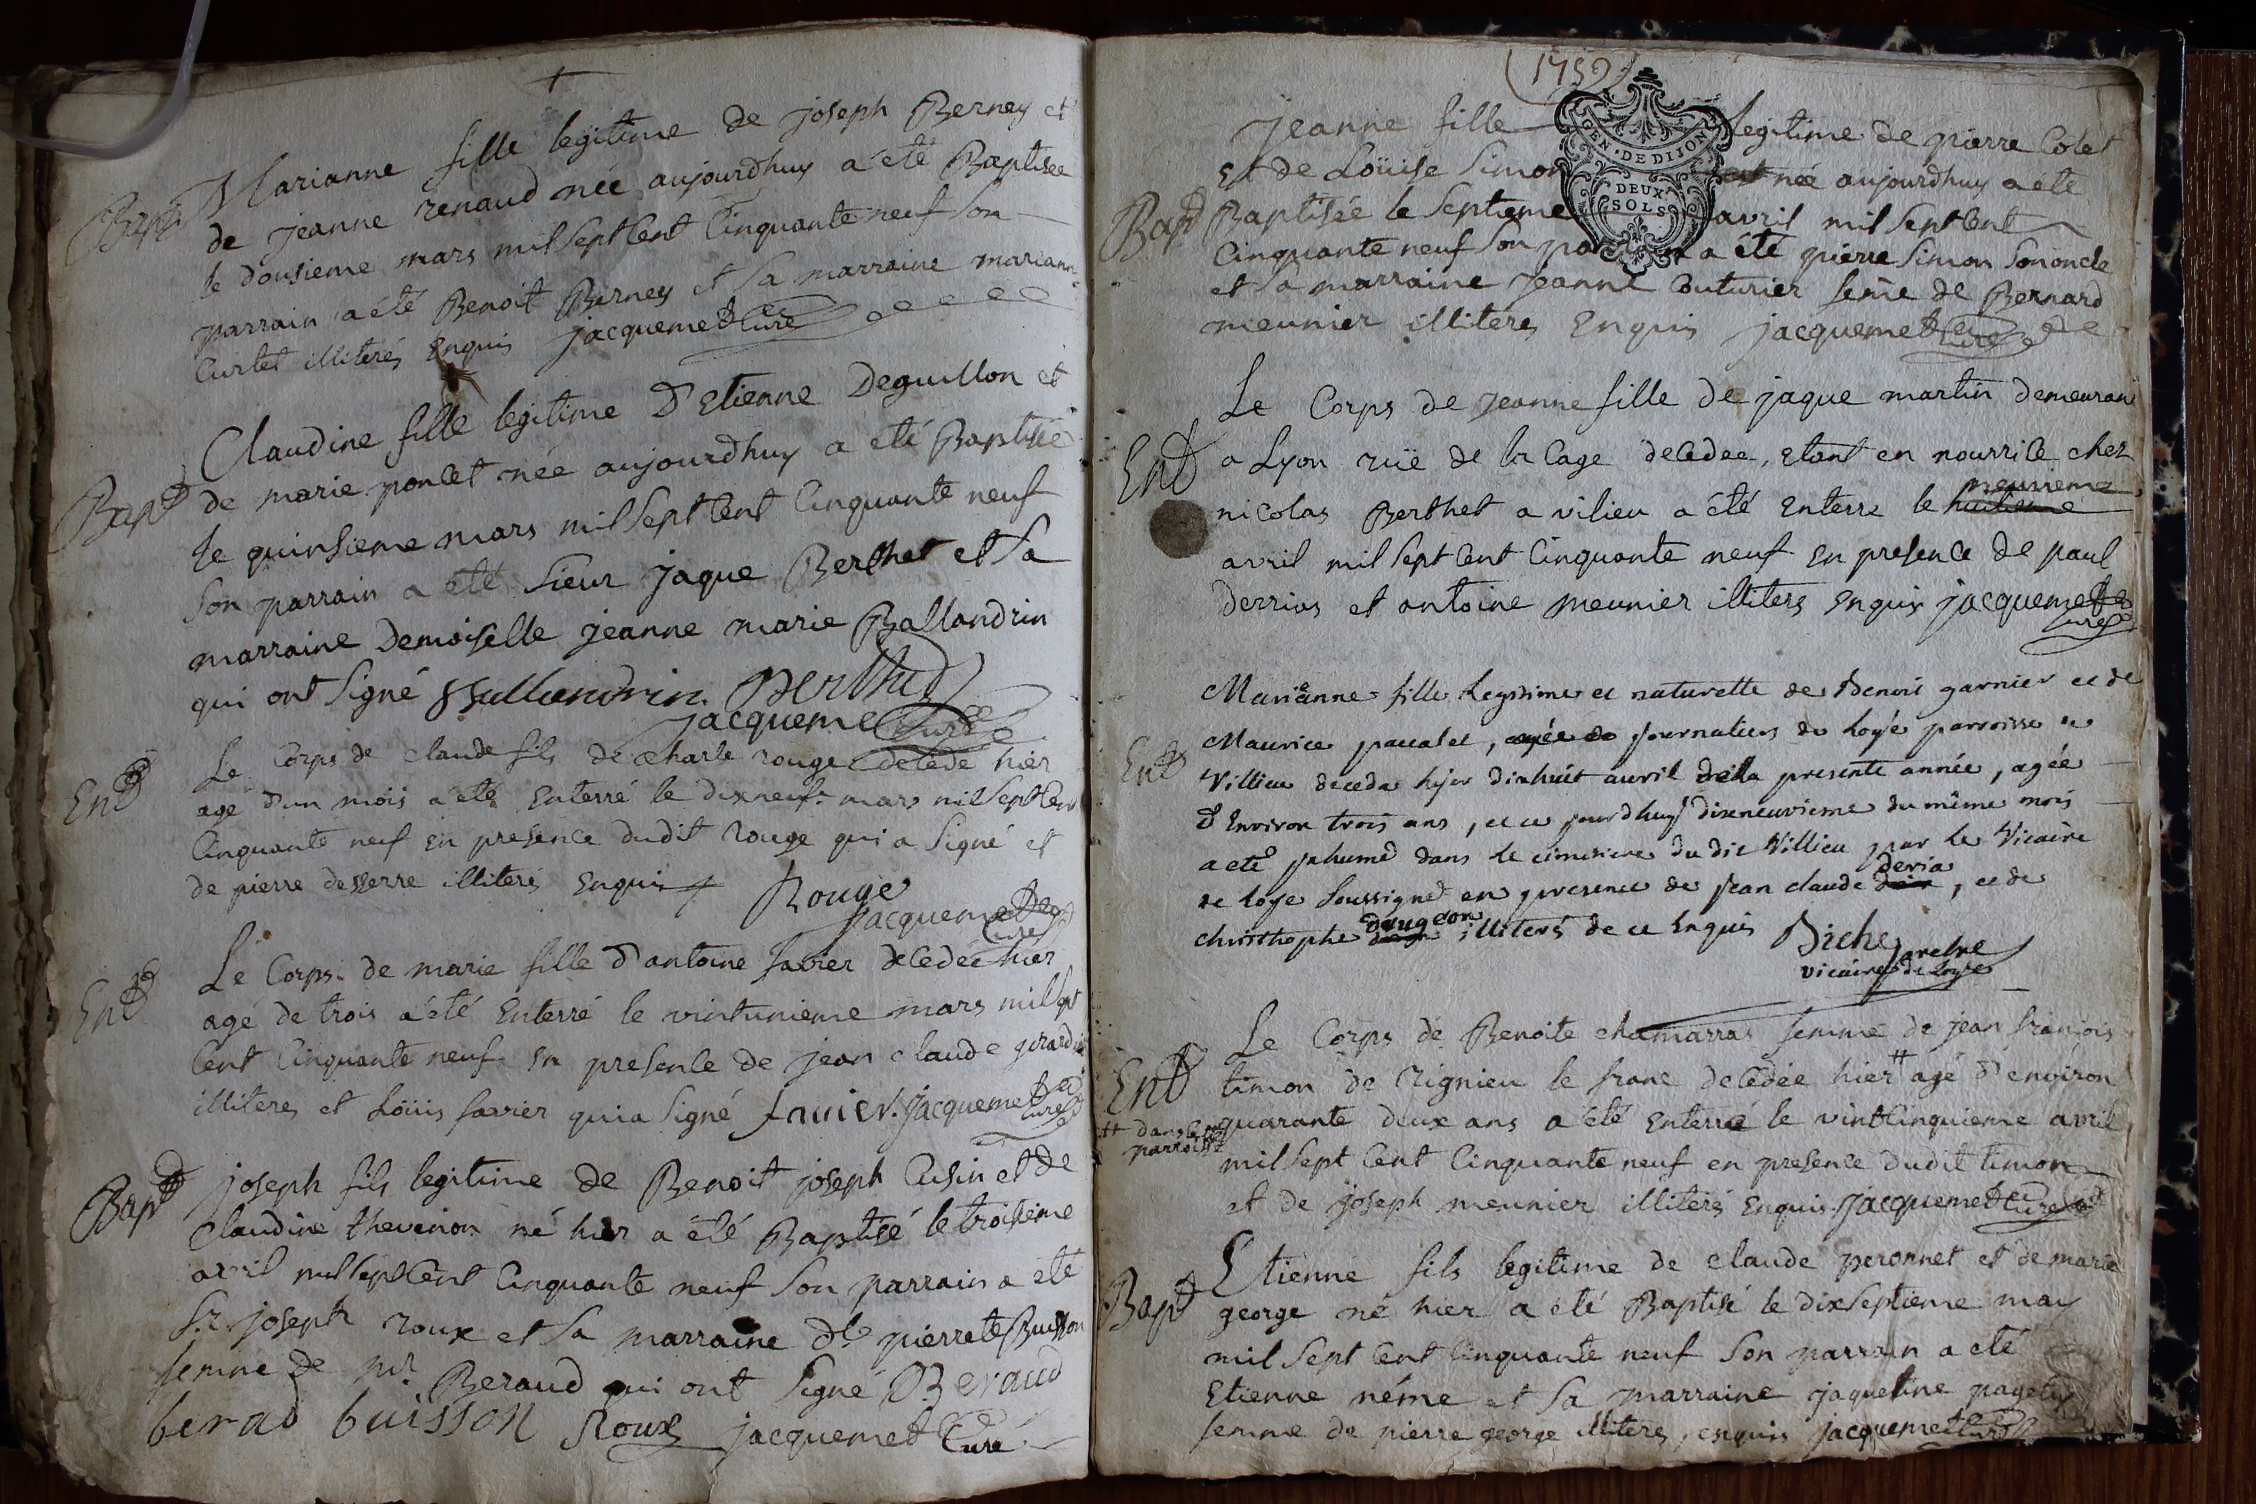 Marianne fille legitime de joseph Berney et
Bapt de jeanne renaud née aujourdhuy a été Baptisée
le dousieme mars mil sept Cent Cinquante neuf son
parrain a été Benoit Berney et sa marraine mariann
Curtet illiterés Enquis jacquemet Curé
Claudine fille legitime D'Etienne Deguillon et
Bapt de marie poncet née aujourdhuy a été Baptisée
le quinsieme mars mil sept Cent Cinquante neuf
son parrain a été sieur jaque Berthet et sa
marraine Demoiselle jeanne marie Ballandrin
qui ont signé Ballandrin Berthet
jacquemet Curé
Le Corps de Claude fils de charle rouge decedé hier
Entt agé d'un mois a été Enterré le dixneuf mars mil sept Cent
Cinquante neuf en presence dudit rouge qui a signé et
de pierre desserre illiteré Enquis Rouge
jacquemet Curé
Le Corps de marie fille d'antoine favier decedée hier
Entt agé de trois a été Enterré le vintunieme mars mil sept
Cent Cinquante neuf en presence de jean claude girardi
illiteres et Loüis favier qui a signé favier jacquemet Curé
joseph fils legitime de Benoit joseph Cusin et de
Bapt Claudine thevenon né hier a été Baptisé le troisieme
avril mil sept Cent Cinquante neuf son parrain a été
Sr. joseph roux et sa marraine dle pierrete Buisson
femme de mr. Beraud qui ont signé Beraud
berad buisson Roux jacquemet Curé
1759
GEN. DE DIJON
DEUX SOLS
Jeanne fille legitime de pierre Colet
Et de Loüise Simon née aujourdhuy a été
Bapt Baptisée le septieme avril mil sept Cent
Cinquante neuf son a été pierre Simon son oncle
et sa marraine Jeanne Couturier feme de Bernard
meunier illiterés Enquis jacquemet Curé
Le Corps de Jeanne fille de jaque martin demeurant
Entt a Lyon rüe de la Cage decedee, etant en nourrice chez
neuvieme
nicolas Berthet a vilieu a été Enterre le huitieme
avril mil sept Cent Cinquante neuf en presence de paul
derrias et antoine meunier illiters Enquis jacquemet
Curé
Marieanne fille legitime et naturelle de Benoit garnier et de
Maurice pacalet, agée de journaliers de loÿe parroisse de
Entt Villieu deceda hyer dixhuit avril de la presente année, agée
d'Environ trois ans, et ce jourdhuy dixneuvieme du même mois
a eté jnhumé dans le cimetiere du dit Villieu par le Vicaire
deria
de loye soussigné en presence de jean claude, et de
daugeon
christhophe illiterés de ce Enquis Biche
vicaire de loyes
Le Corps de Benoite chamarras femme de jean françois
Entt timon de rignieu le franc decedée hier # agé d'environ
# dans cette parroisse
quarante deux ans a été Enterré le vintcinquieme avril
mil sept Cent Cinquante neuf en presence dudit timon
et de joseph meunier illiterés Enquis jacquemet Curé
Etienne fils legitime de Claude peronnet et de marie
Bapt george né hier a été Baptisé le dixseptieme may
mil sept Cent Cinquante neuf son parrain a eté
Etienne néme et sa marraine jaquetine
femme de pierre george illiteres, enquis jacquemet Curé